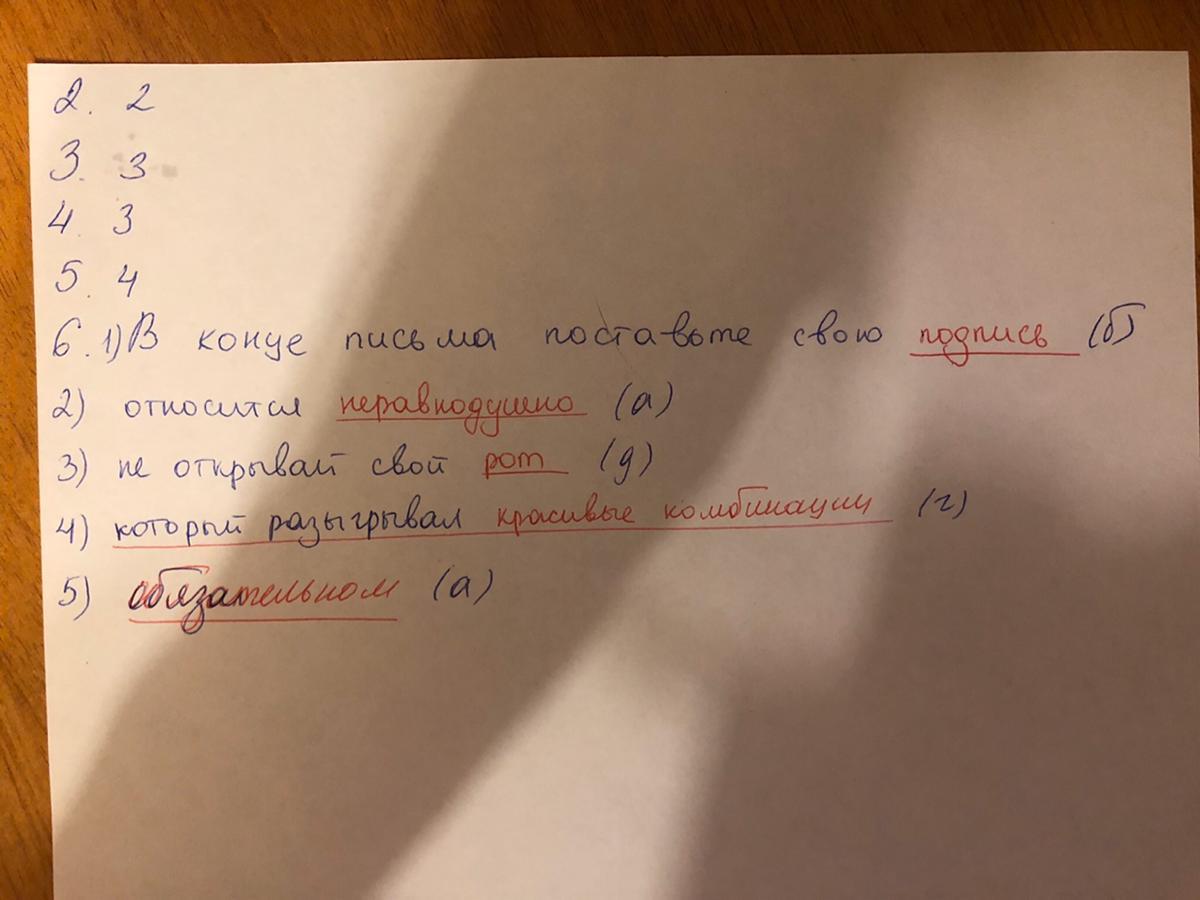 2. 2
3. 3
4. 3
5. 4
6. 1) В конце письма поставьте свою подпись (б)
2) относится неравнодушно (а)
3) не открывай свой рот (д)
4) который разыгрывал красивые комбинации (г)
5) обязательном (а)